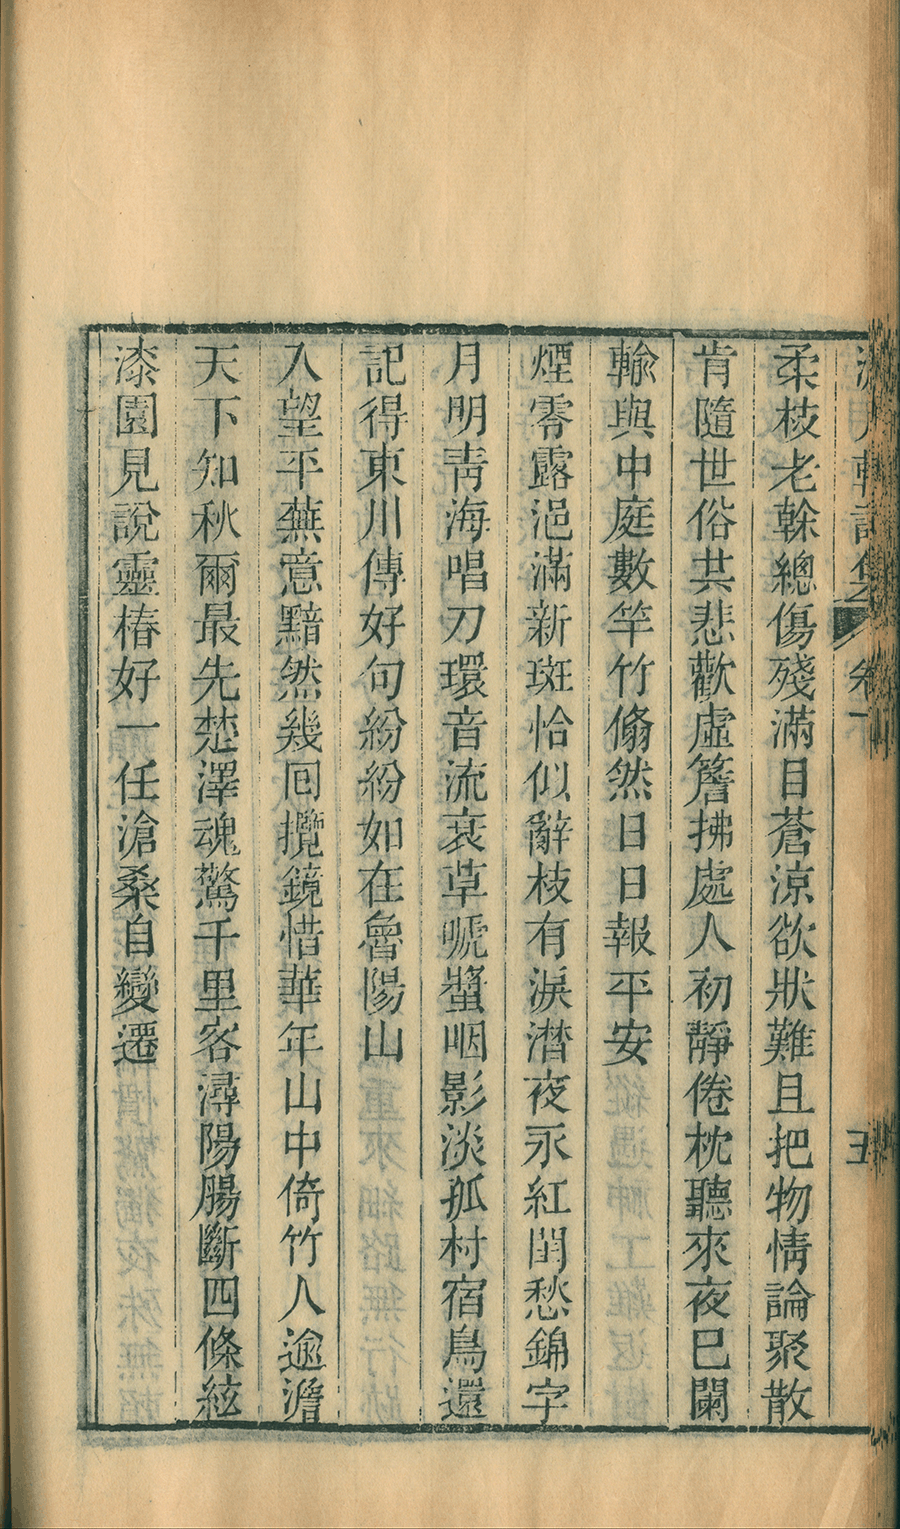 軒詩集 卷一 五
柔枝老榦總傷殘滿目蒼涼欲狀難且把物情論聚散
肯隨世俗共悲歡虛簷拂處人初靜倦枕聽來夜巳闌
輸與中庭數竿竹翛然日日報平安
煙零露浥滿新斑恰似辭枝有淚潸夜永紅閨愁錦字
月明靑海唱刀環音流衰草嘷螿咽影淡孤村宿鳥還
記得東川傳好句紛紛如在魯陽山
入望平蕪意黯然幾囘攬鏡惜華年山中倚竹人逾澹
天下知秋爾最先楚澤魂驚千里客潯陽腸斷四條絃
漆園見說靈椿好一任滄桑自變遷